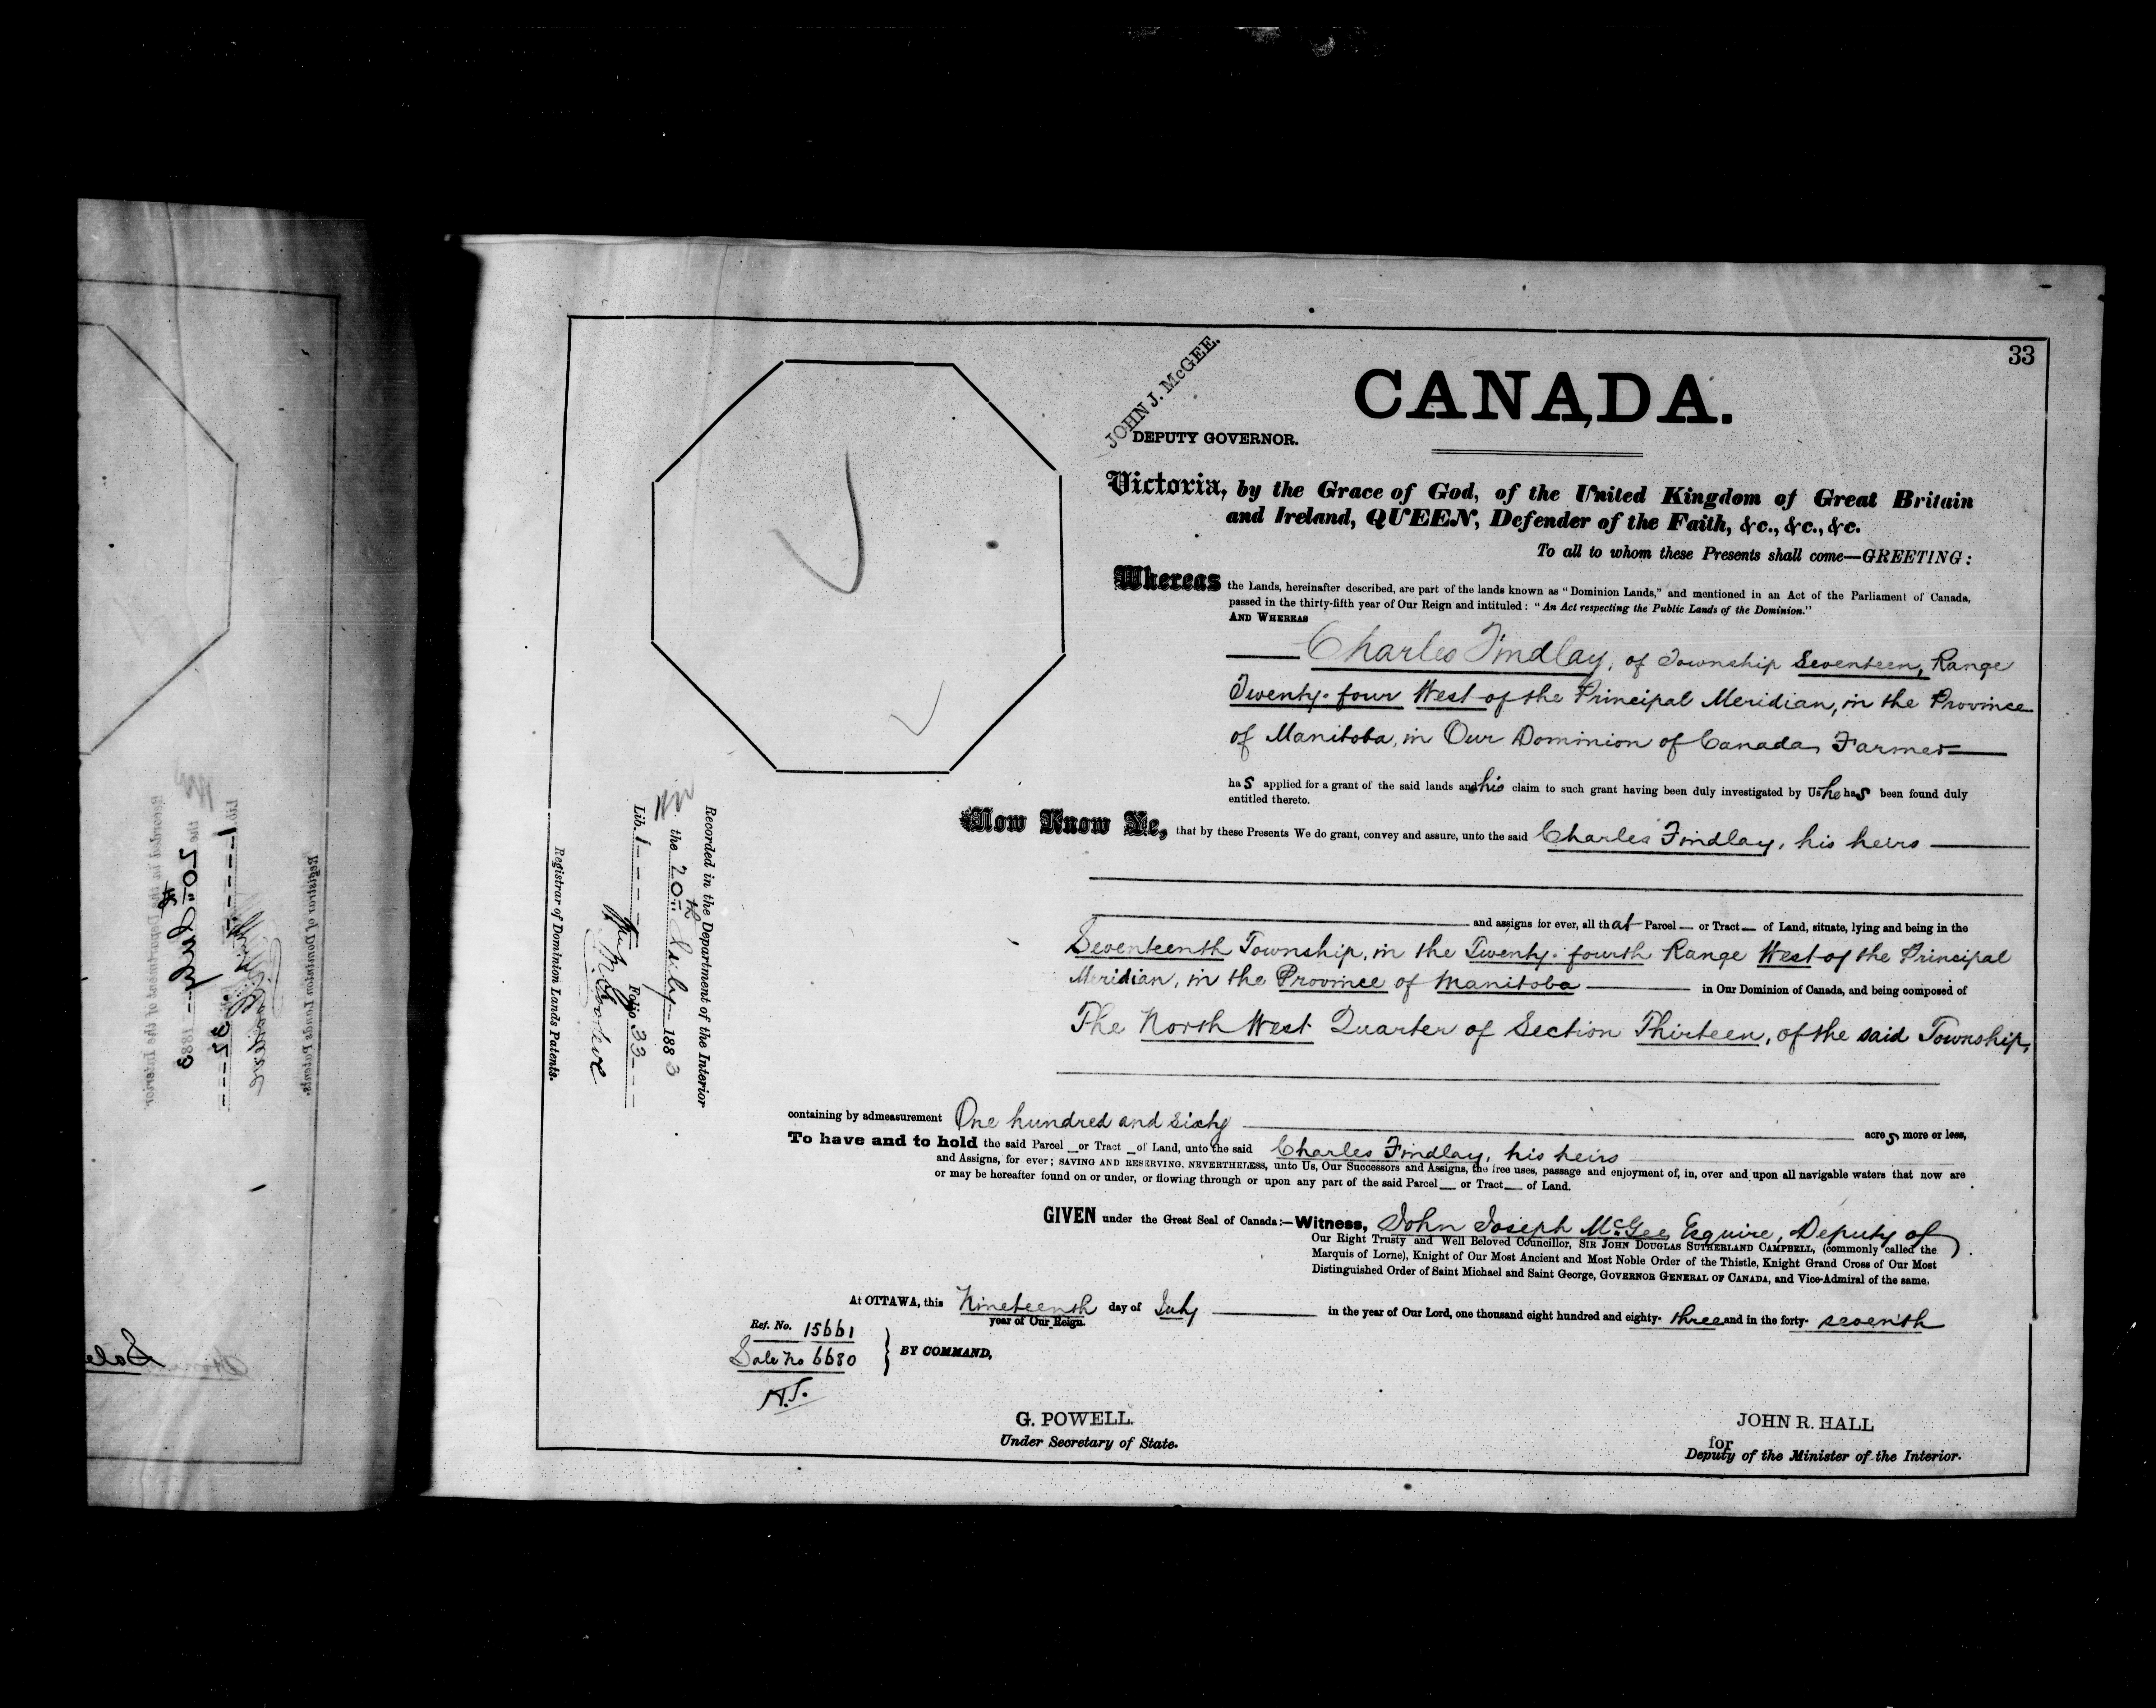 33
JOHN J. McGEE.
DEPUTY GOVERNOR.
CANADA.
Victoria, by the Grace of God, of the United Kingdom of Great Britain
and Ireland, QUEEN, Defender of the Faith, &c., &c., &c.
To all to whom these Presents shall come—GREETING:
Whereas the Lands, hereinafter described, are part of the lands known as "Dominion Lands," and mentioned in an Act of the Parliament of Canada,
passed in the thirty-fifth year of Our Reign and intituled: "An Act respecting the Public Lands of the Dominion."
AND WHEREAS
Charles Findlay, of Township Seventeen, Range
Twenty-four West of the Principal Meridian, in the Province
of Manitoba, in Our Dominion of Canada, Farmer
has applied for a grant of the said lands and his claim to such grant having been duly investigated by Us he has been found duly
entitled thereto.
Now Know Ye, that by these Presents We do grant, convey and assure, unto the said Charles Findlay, his heirs
and assigns for ever, all that Parcel — or Tract — of Land, situate, lying and being in the
Seventeenth Township, in the Twenty-fourth Range West of the Principal
Meridian, in the Province of Manitoba in Our Dominion of Canada, and being composed of
The North West Quarter of Section Thirteen, of the said Township,
containing by admeasurement One hundred and sixty acres, more or less,
To have and to hold the said Parcel _ or Tract _ of Land, unto the said Charles Findlay, his heirs
and Assigns, for ever; SAVING AND RESERVING, NEVERTHELESS, unto Us, Our Successors and Assigns, the free uses, passage and enjoyment of, in, over and upon all navigable waters that now are
or may be hereafter found on or under, or flowing through or upon any part of the said Parcel — or Tract — of Land.
GIVEN under the Great Seal of Canada:—Witness, John Joseph McGee Esquire, Deputy of
Our Right Trusty and Well Beloved Councillor, SIR JOHN DOUGLAS SUTHERLAND CAMPBELL, (commonly called the
Marquis of Lorne), Knight of Our Most Ancient and Most Noble Order of the Thistle, Knight Grand Cross of Our Most
Distinguished Order of Saint Michael and Saint George, GOVERNOR GENERAL OF CANADA, and Vice-Admiral of the same.
At OTTAWA, this Nineteenth day of July in the year of Our Lord, one thousand eight hundred and eighty-three and in the forty-seventh
year of Our Reign.
Ref. No. 15661
Sale No 6680
BY COMMAND,
G. POWELL.
Under Secretary of State.
JOHN R. HALL
for
Deputy of the Minister of the Interior.
Recorded in the Department of the Interior
the 20th July 1883
Lib. 1 Folio 33
Registrar of Dominion Lands Patents.
Recorded in the Department of the Interior.
the 20th July 1883
Lib. 1 32
Registrar of Dominion Lands Patents.
Sale